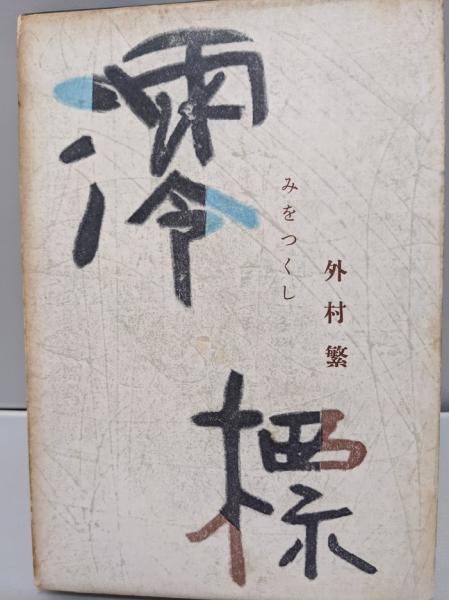 澪標
みをつくし
外村繁